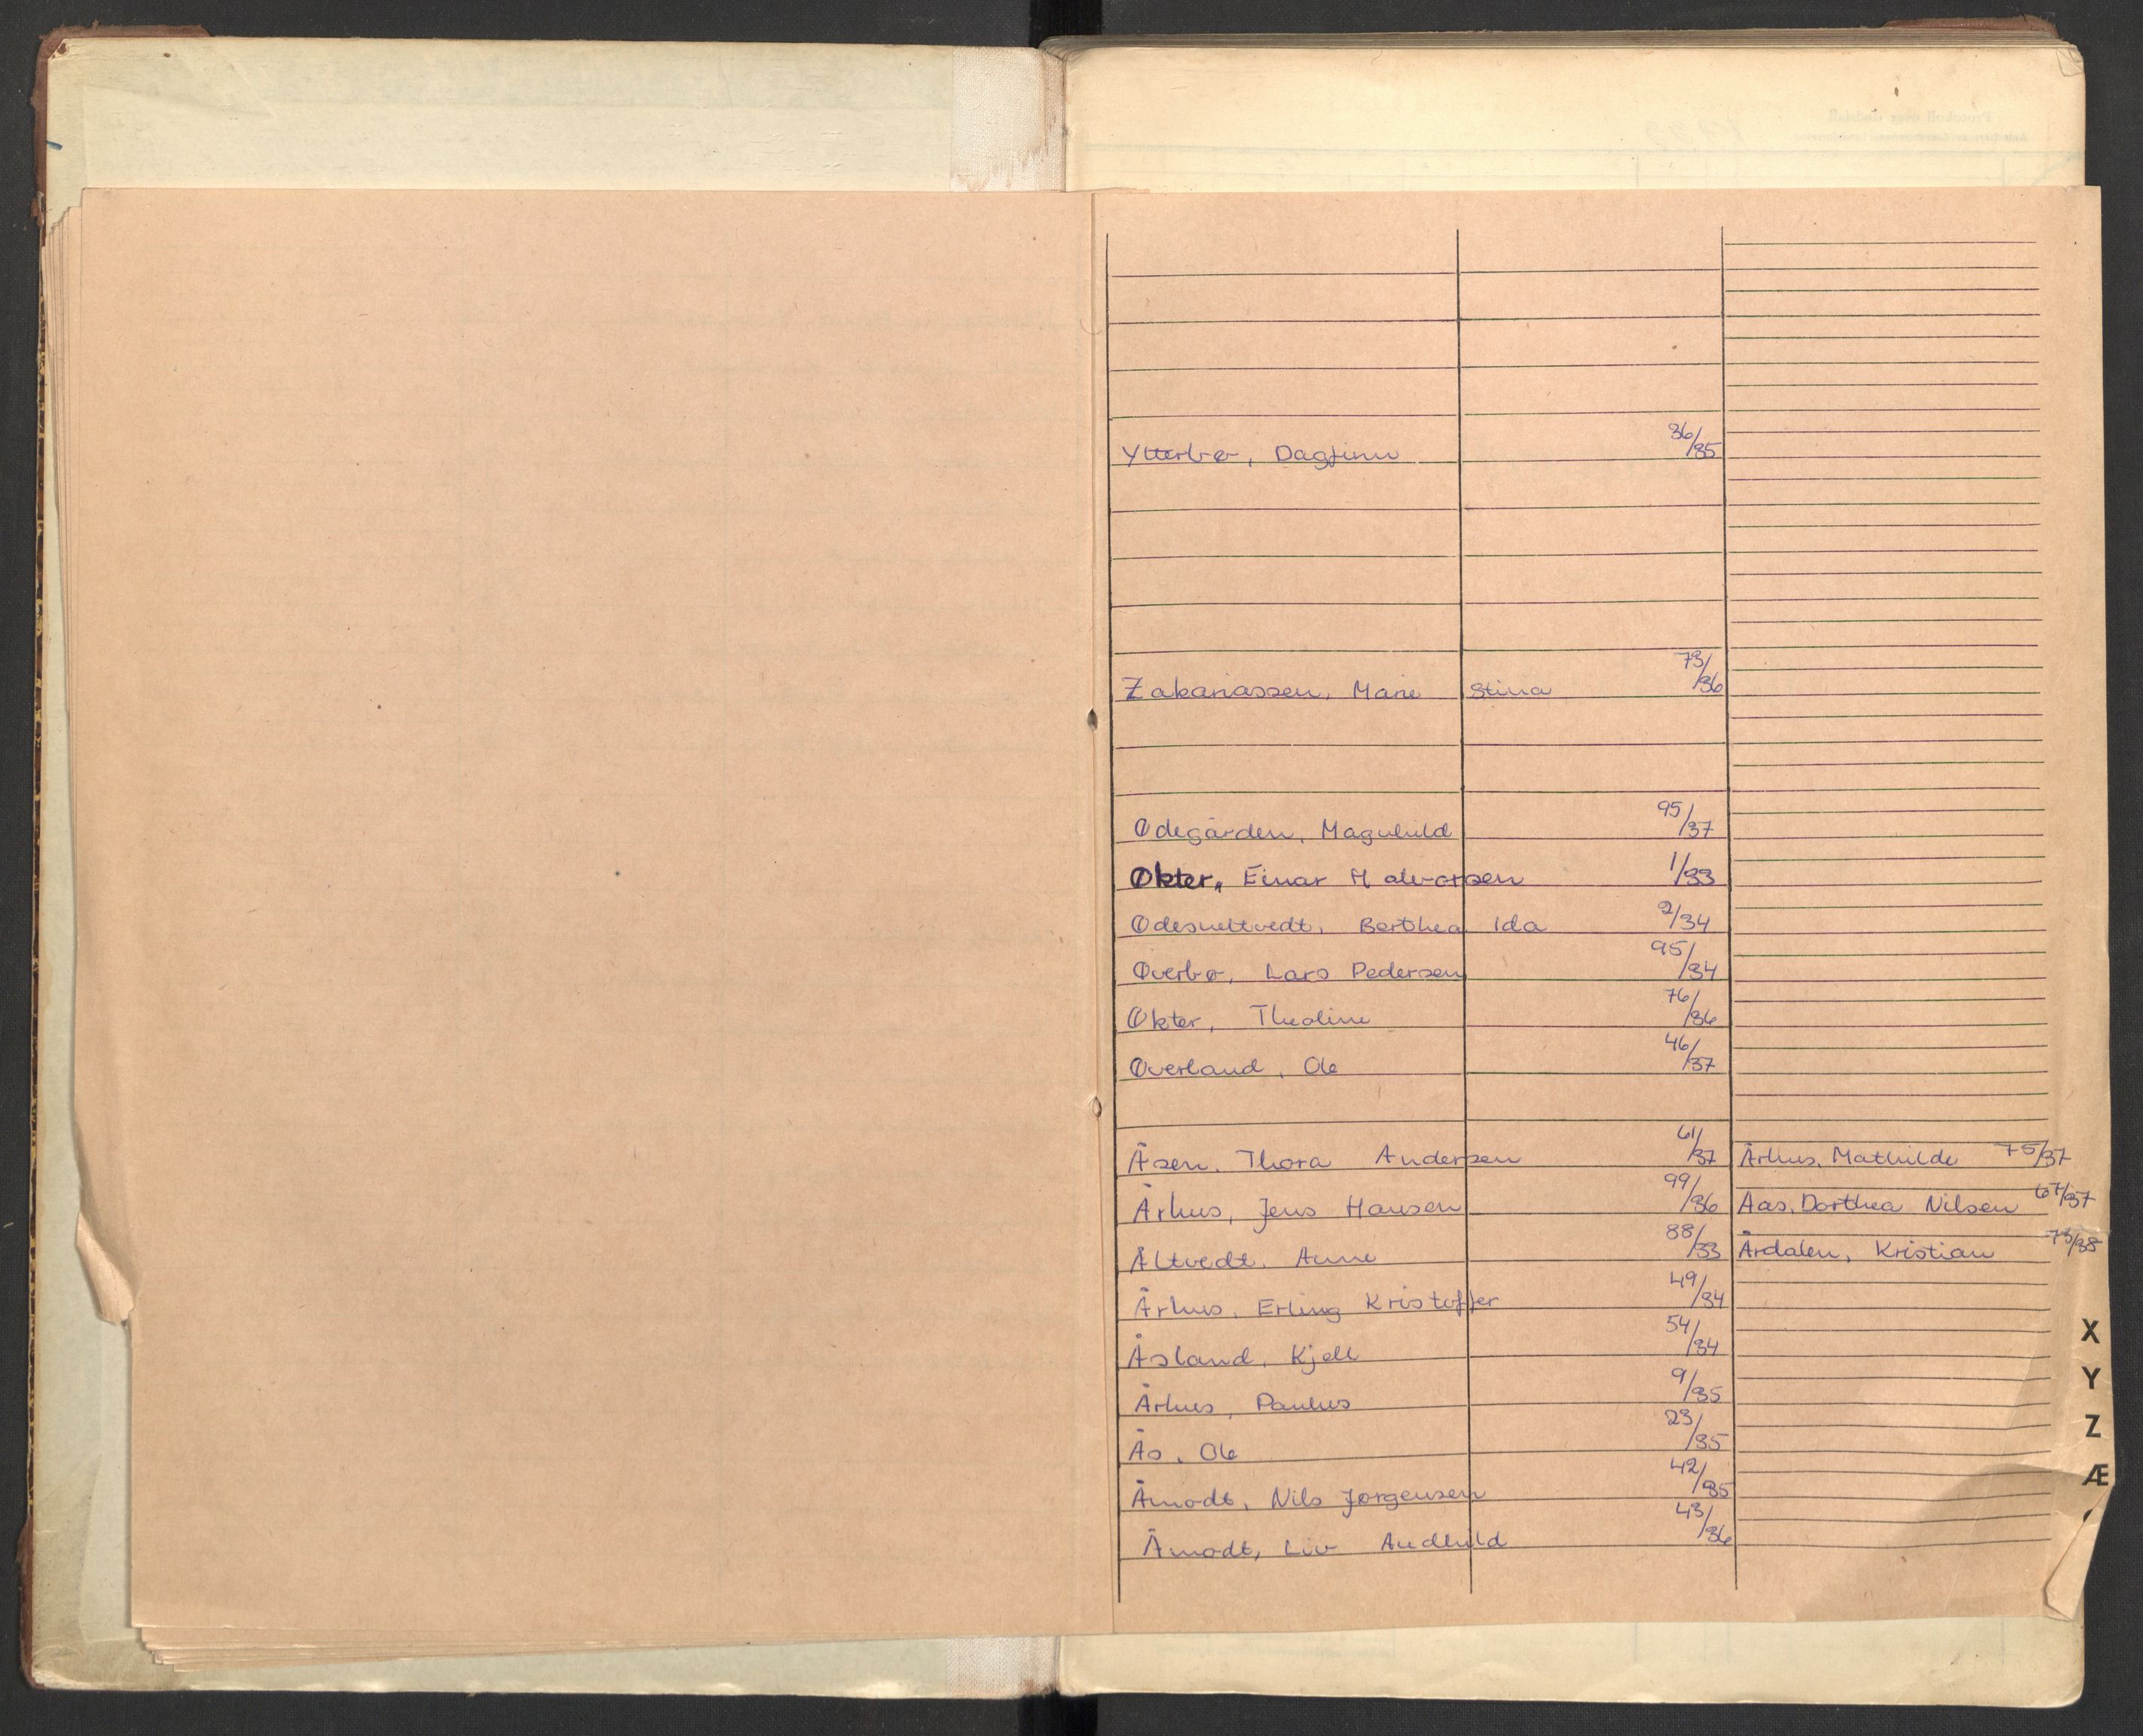 Protokoll over dødsfall
Ytterbø, Dagfinn 36/35
Zakariassen, Marie Stina 73/36
Ødegården, Magnhild 95/37
Økter, Einar Halvorsen 1/33
Ødesneltvedt, Berthea Ida 2/34
Øverbø, Lars Pedersen 95/34
Økter, Theoline 76/36
Øverland, Ole 46/37
Åsen, Thora Andersen 61/37
Århus, Jens Hansen 99/36
Åltvedt, Anne 88/33
Århus, Erling Kristoffer 49/34
Åsland, Kjell 54/34
Århus, Paulus 9/35
Ås, Ole 23/35
Åmodt, Nils Jørgensen 42/35
Åmodt, Liv Audhild 43/36
Århus, Mathilde 75/37
Aas, Dorthea Nilsen 67/37
Årdalen, Kristian 73/38
X
Y
Z
Æ